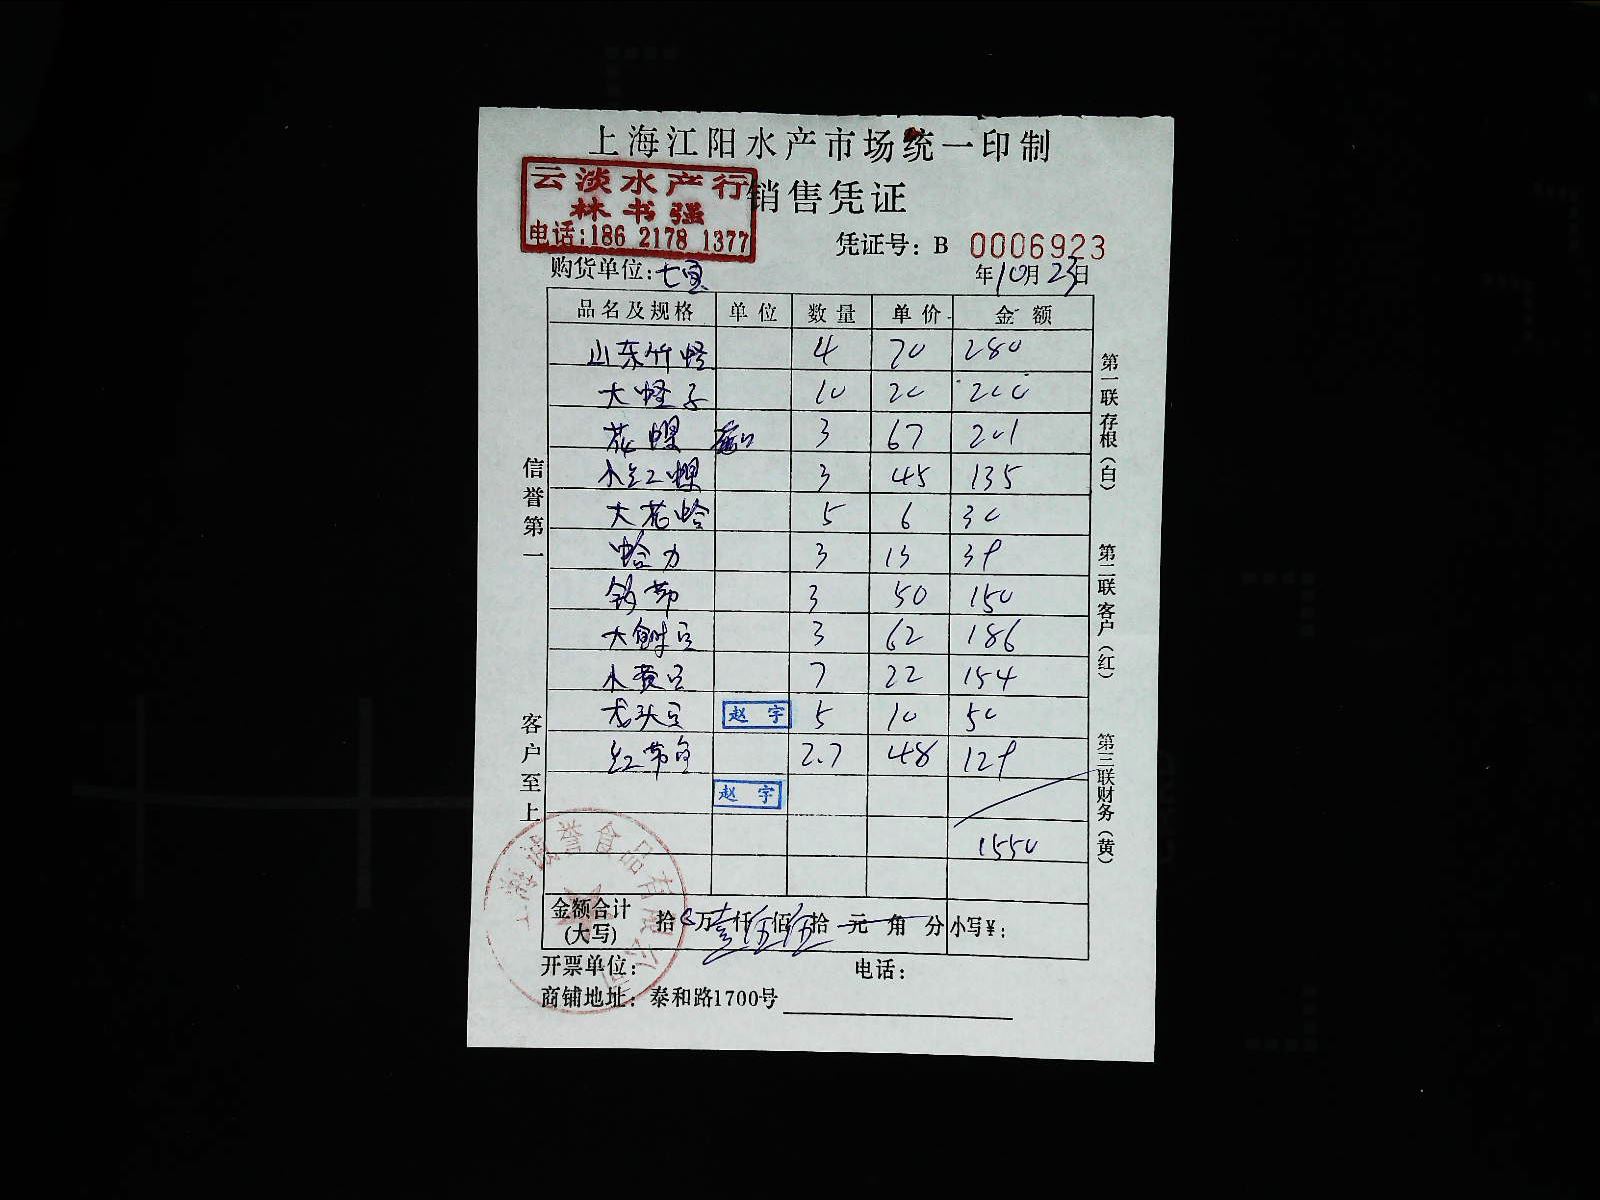 上海江阳水产市场统一印制
云淡水产行
林书强
电话:186 2178 1377
销售凭证
凭证号: B 0006923
购货单位:七宝
年10月23日
品名及规格 单位 数量 单价 金额
山东竹蛏 4 70 280
大蛏子 10 20 200
花螺 3 67 201
小红螺 3 45 135
大花蛤 5 6 30
蛤力 3 13 39
3 50 150
大 豆 3 62 186
小黄豆 7 22 154
龙头豆 赵宇 5 10 50
红带鱼 2.7 48 129
赵宇
1550
金额合计(大写) 拾 万壹仟伍佰伍拾元角分 小写¥:
开票单位: 电话:
商铺地址: 泰和路1700号
信誉第一
客户至上
第一联存根(白)
第二联客户(红)
第三联财务(黄)
上海诚誉食品有限公司